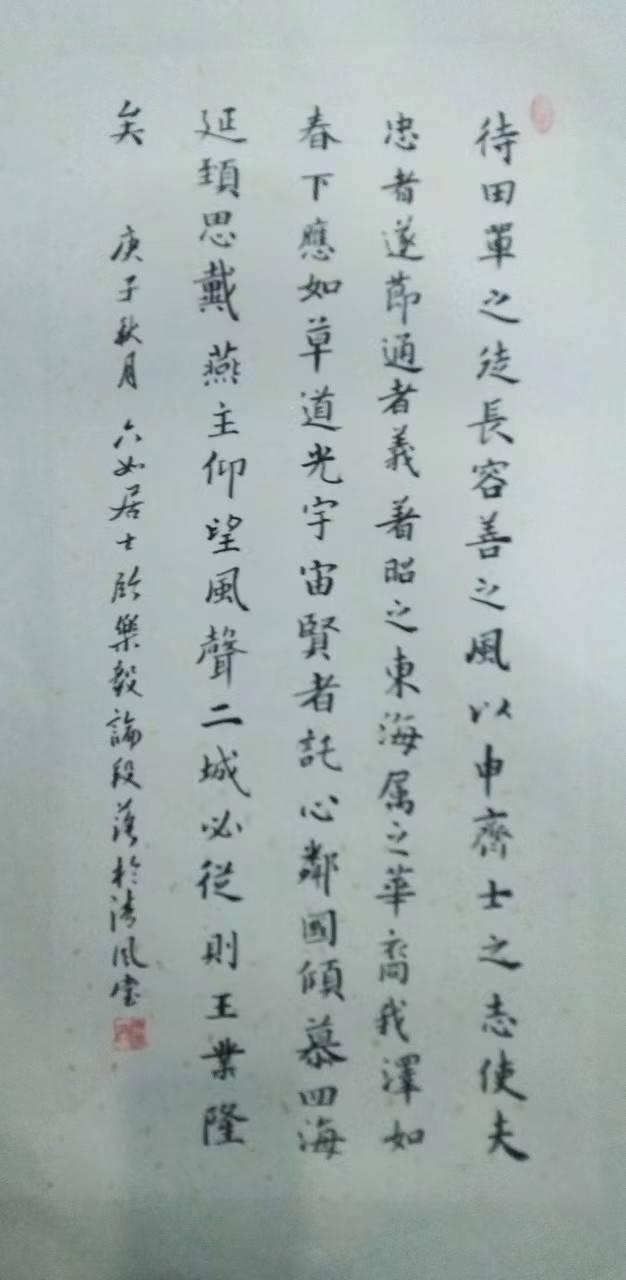 待田單之徒長容善之風以申齊士之志使夫
忠者遂節通者義著昭之東海属之華裔我澤如
春下應如草道光宇宙賢者託心鄰國傾慕四海
延頸思戴燕主仰望風聲二城必從則王業隆
矣 庚子秋月 六如居士臨樂毅論段落於清風堂